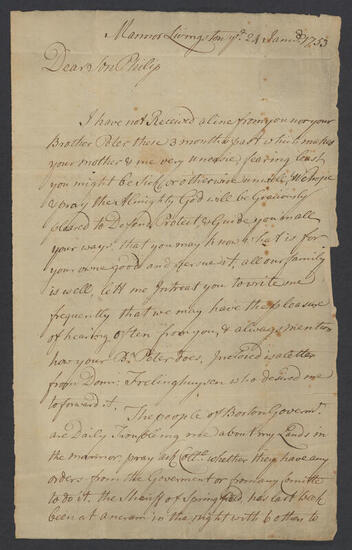 Mannor Livingston ye. 24 Janry. 1753
Dear Son Philip
I have not Received a line from you nor your
Brother Peter these 3 months past which makes
your mother & me very uneasie, fearing least
you might be Sick or otherwise unwell, We hope
& pray the Almighty God will be Graciously
pleased to Defend, Protect & Guide you in all
your ways, that you may know what is for
your owne good and persue it, all our family
is well, lett me Intreat you to write me
frequently that we may have the pleasure
of hearing often from you, & always mention
how your Br. Peter does, Inclosed is a letter
from Domi: Frelinghuysen who desired me
to forward it.
The people of Boston Governt.
are Daily Troubling me about my Lands in
the mannor, pray ask whether they have any
orders from the Government or from any Comitte
to do it, the Sheriff of Springfield, has last week
been at ancram in the night with 6 others to